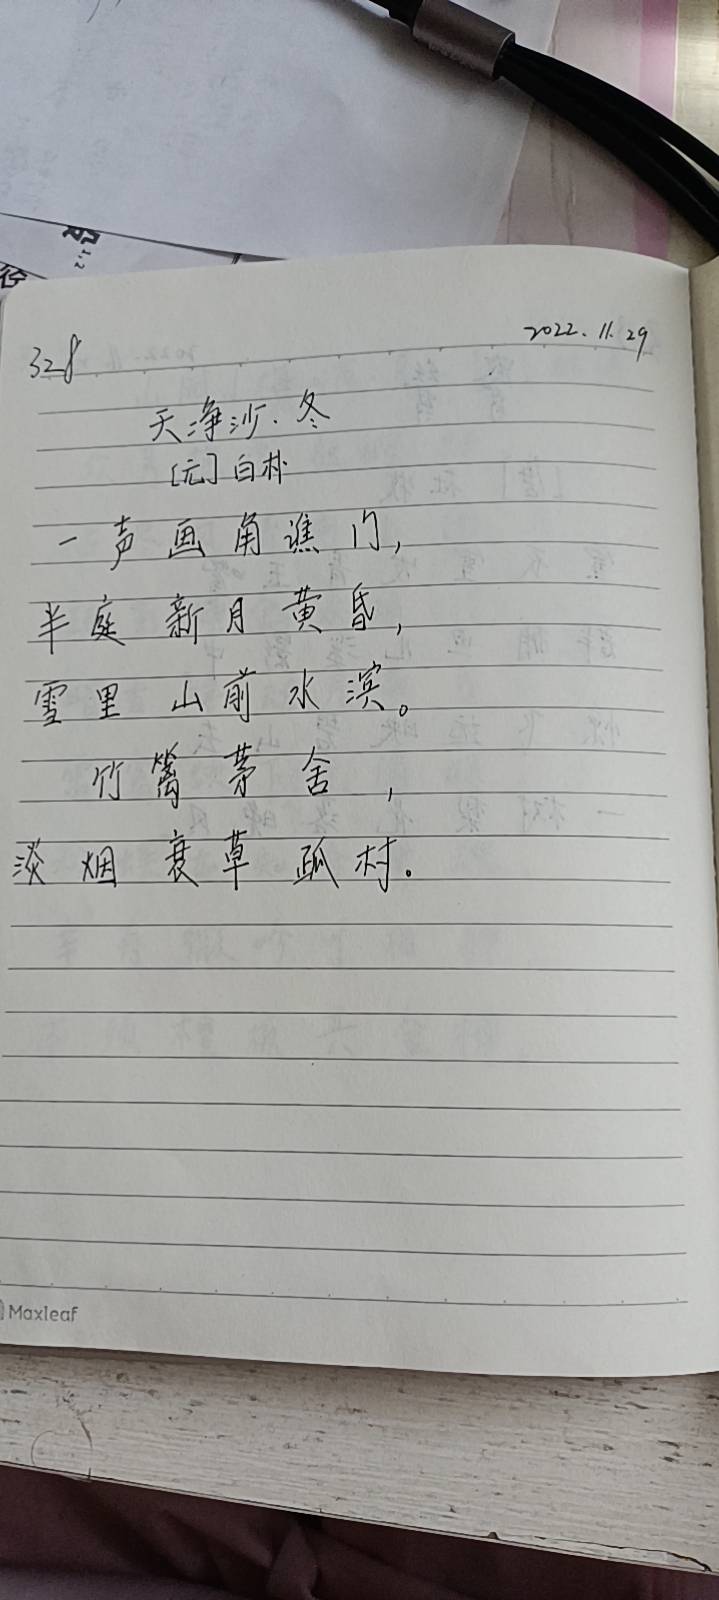 328
2022.11.29
天净沙·冬
[元]白朴
一声画角谯门,
半庭新月黄昏,
雪里山前水滨。
竹篱茅舍,
淡烟衰草孤村。
Maxleaf